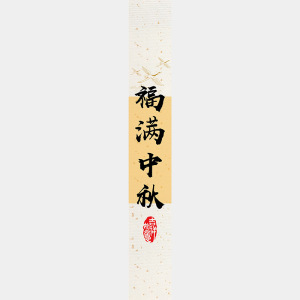 福满中秋